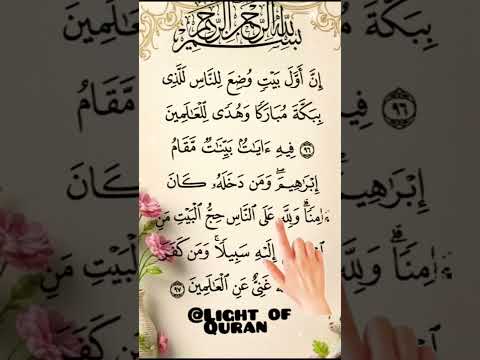 بسم الله الرحمن الرحيم
إِنَّ أَوَّلَ بَيْتٍ وُضِعَ لِلنَّاسِ لَلَّذِى
بِبَكَّةَ مُبَارَكًا وَهُدًى لِّلْعَالَمِينَ
۹٦ فِيهِ ءَايَاتٌ بَيِّنَاتٌ مَّقَامُ
إِبْرَاهِيمَ ۖ وَمَن دَخَلَهُۥ كَانَ
ءَامِنًا ۗ وَلِلَّهِ عَلَى ٱلنَّاسِ حِجُّ ٱلْبَيْتِ مَنِ
إِلَيْهِ سَبِيلًا ۚ وَمَن كَفَرَ
غَنِىٌّ عَنِ ٱلْعَالَمِينَ ۹٧
@Light of
Quran